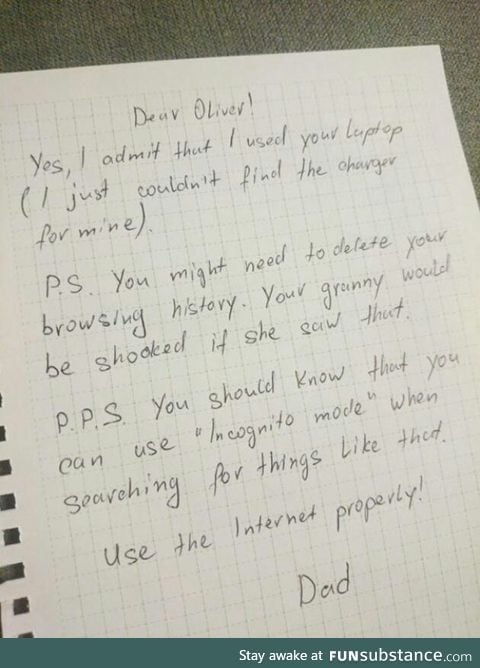 Dear Oliver!
Yes, I admit that I used your laptop
(I just couldn't find the charger
for mine).
P.S. You might need to delete your
browsing history. Your granny would
be shooked if she saw that.
P.P.S. You should know that you
can use "Incognito mode" when
searching for things like that.
Use the Internet properly!
Dad
Stay awake at FUNsubstance.com